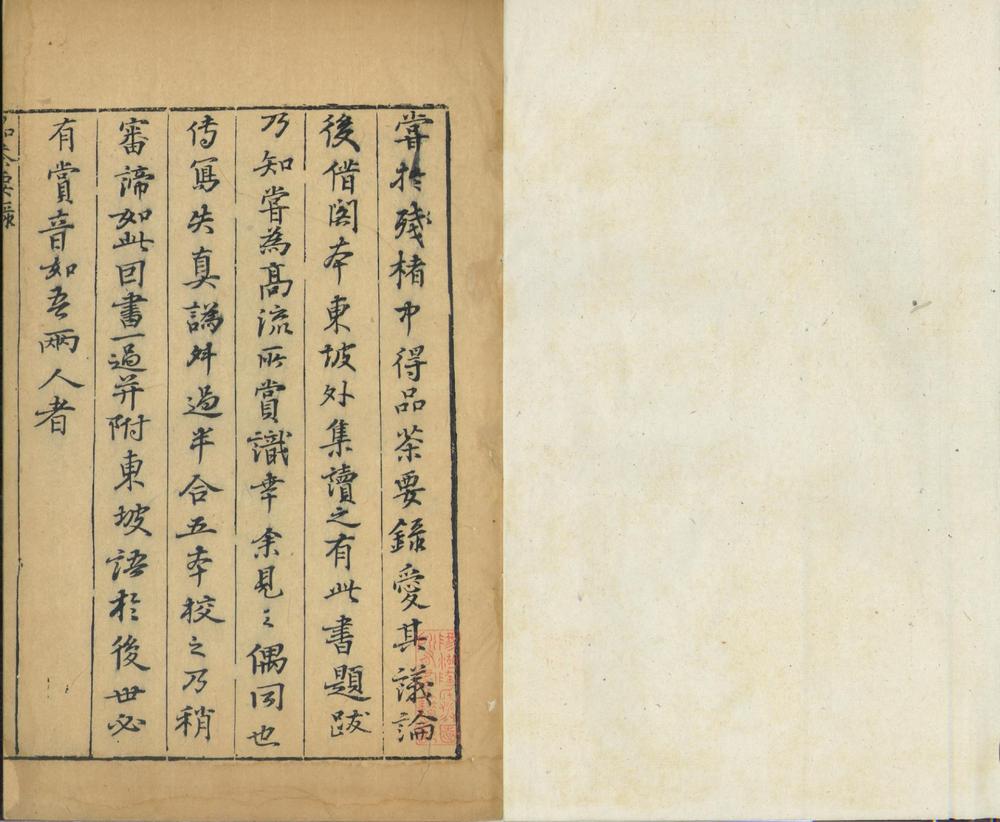 嘗於殘楮中得品茶要錄愛其議論
後借閣本東坡外集讀之有此書題跋
乃知嘗為高流所賞識幸余見之偶同也
傳寫失真譌舛過半合五本校之乃稍
審諦如此因書一過并附東坡語於後世必
有賞音如吾兩人者
品茶要录